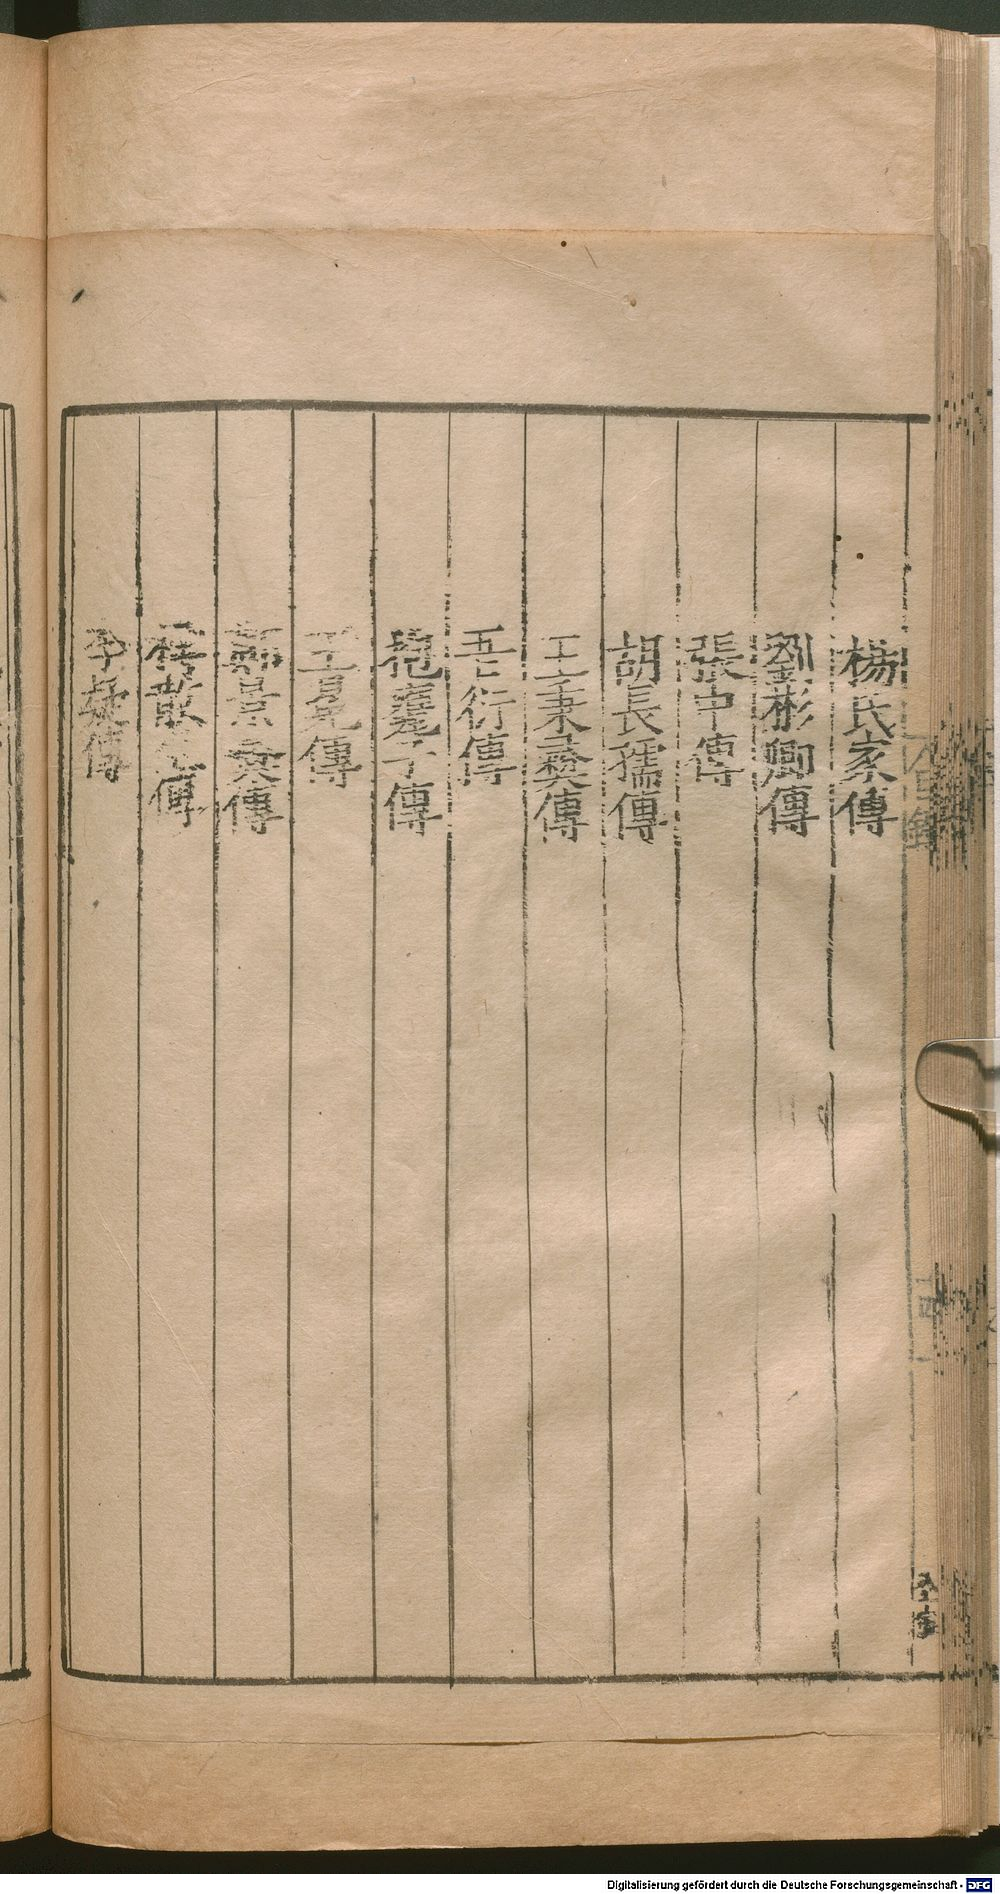 楊氏家傳
劉彬卿傳
張中傳
胡長孺傳
王秉彝傳
吾衍傳
抱甕子傳
王冕傳
鄭景彝傳
樗散生傳
李疑傳
Digitalisierung gefördert durch die Deutsche Forschungsgemeinschaft - DFG